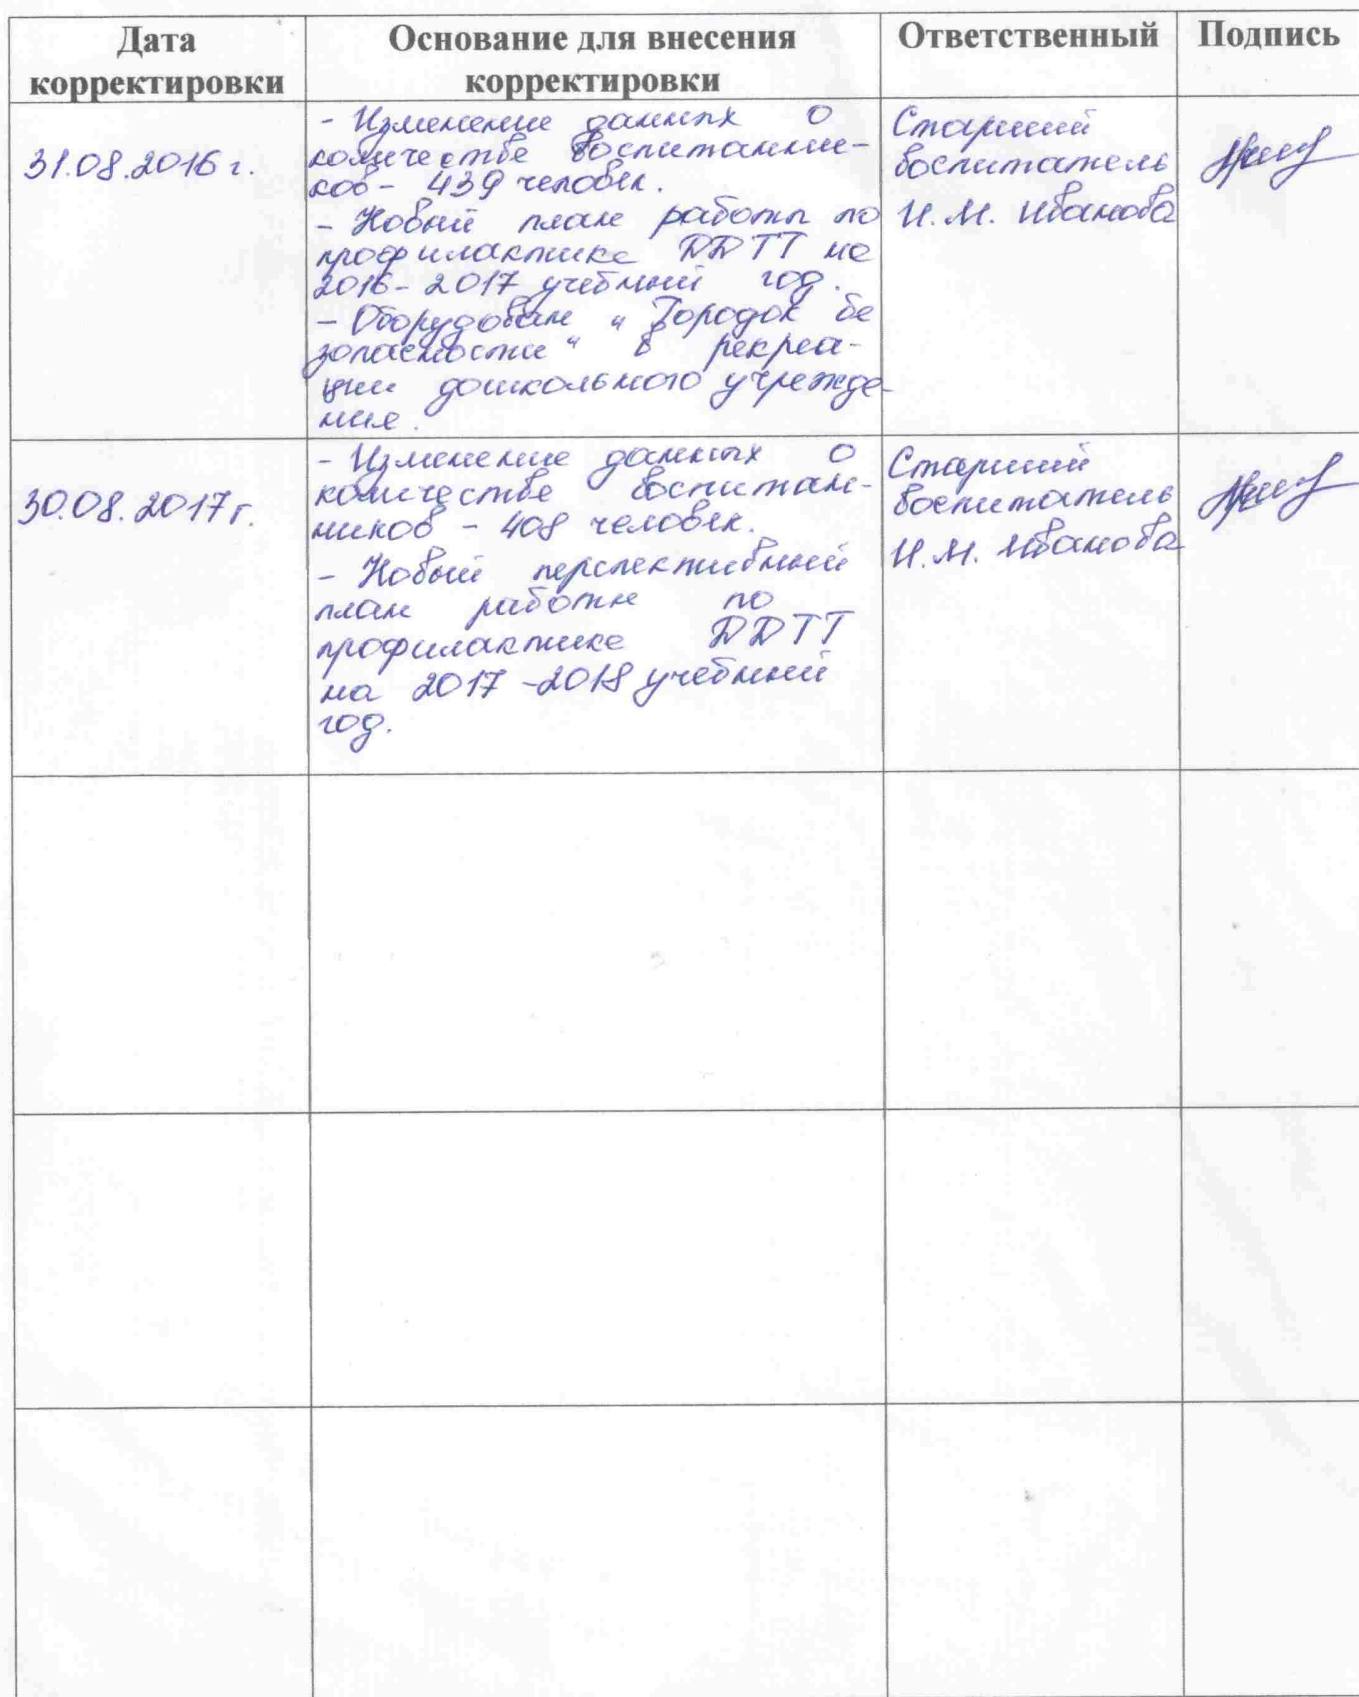 Дата
корректировки
Основание для внесения
корректировки
Ответственный
Подпись
31.08.2016 г.
- Изменение данных о
количестве воспитанни-
ков - 439 человек.
- Новый план работы по
профилактике ДДТТ на
2016-2017 учебный год.
- Оборудован "Городок бе
зопасности" в рекреа-
ции дошкольного учрежде-
ния.
Старший
воспитатель
И.М. Иванова
30.08.2017г.
- Изменение данных о
количестве воспитан-
ников - 408 человек.
- Новый перспективный
план работы по
профилактике ДДТТ
на 2017-2018 учебный
год.
Старший
воспитатель
И.М. Иванова